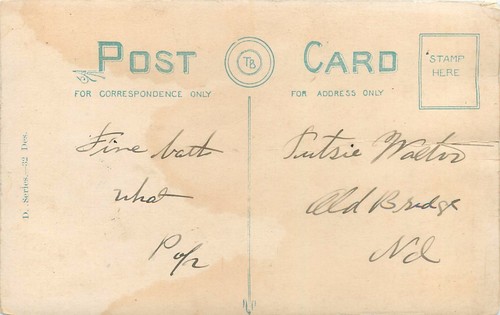 POST TB CARD
STAMP
HERE
FOR CORRESPONDENCE ONLY
FOR ADDRESS ONLY
D. Series—32 Des.
Fine batt
what
Pop
Tutsie Walto
Old Bridge